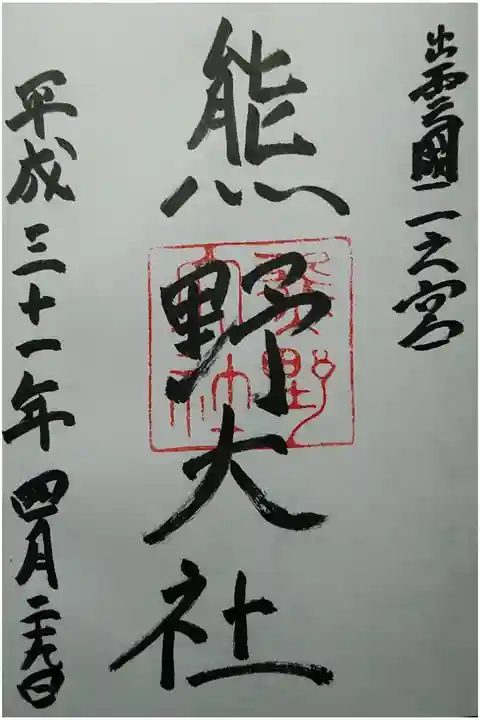 出雲國一之宮
熊野大社
熊野大社
平成三十一年四月二十九日